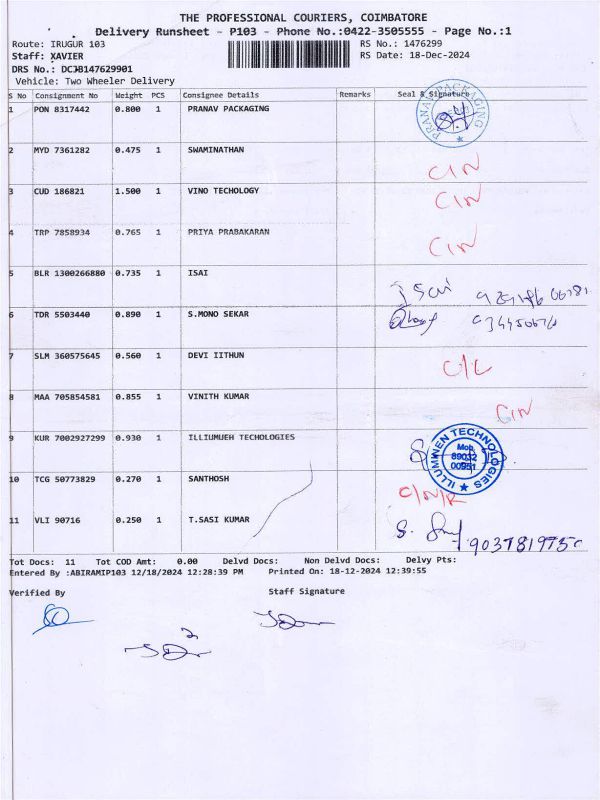 THE PROFESSIONAL COURIERS, COIMBATORE
Delivery Runsheet - P103 - Phone No.:0422-3505555 - Page No.:1
Route: IRUGUR 103 RS No.: 1476299
Staff: XAVIER RS Date: 18-Dec-2024
DRS No.: DCJB147629901
Vehicle: Two Wheeler Delivery
S No Consignment No Weight PCS Consignee Details Remarks Seal & Signature
1 PON 8317442 0.800 1 PRANAV PACKAGING PRANAV PACKAGING
2 MYD 7361282 0.475 1 SWAMINATHAN C/N
3 CUD 186821 1.500 1 VINO TECHOLOGY C/N
4 TRP 7858934 0.765 1 PRIYA PRABAKARAN C/N
5 BLR 1300266880 0.735 1 ISAI Isai
6 TDR 5503440 0.890 1 S.MONO SEKAR
7 SLM 360575645 0.560 1 DEVI IITHUN C/L
8 MAA 705854581 0.855 1 VINITH KUMAR C/N
9 KUR 7002927299 0.930 1 ILLIUMUEH TECHOLOGIES ILLUMINEN TECHNOLOGIES Mob 89032 00951
10 TCG 50773829 0.270 1 SANTHOSH C/N/R
11 VLI 90716 0.250 1 T.SASI KUMAR
Tot Docs: 11 Tot COD Amt: 0.00 Delvd Docs: Non Delvd Docs: Delvy Pts:
Entered By :ABIRAMIP103 12/18/2024 12:28:39 PM Printed On: 18-12-2024 12:39:55
Verified By Staff Signature